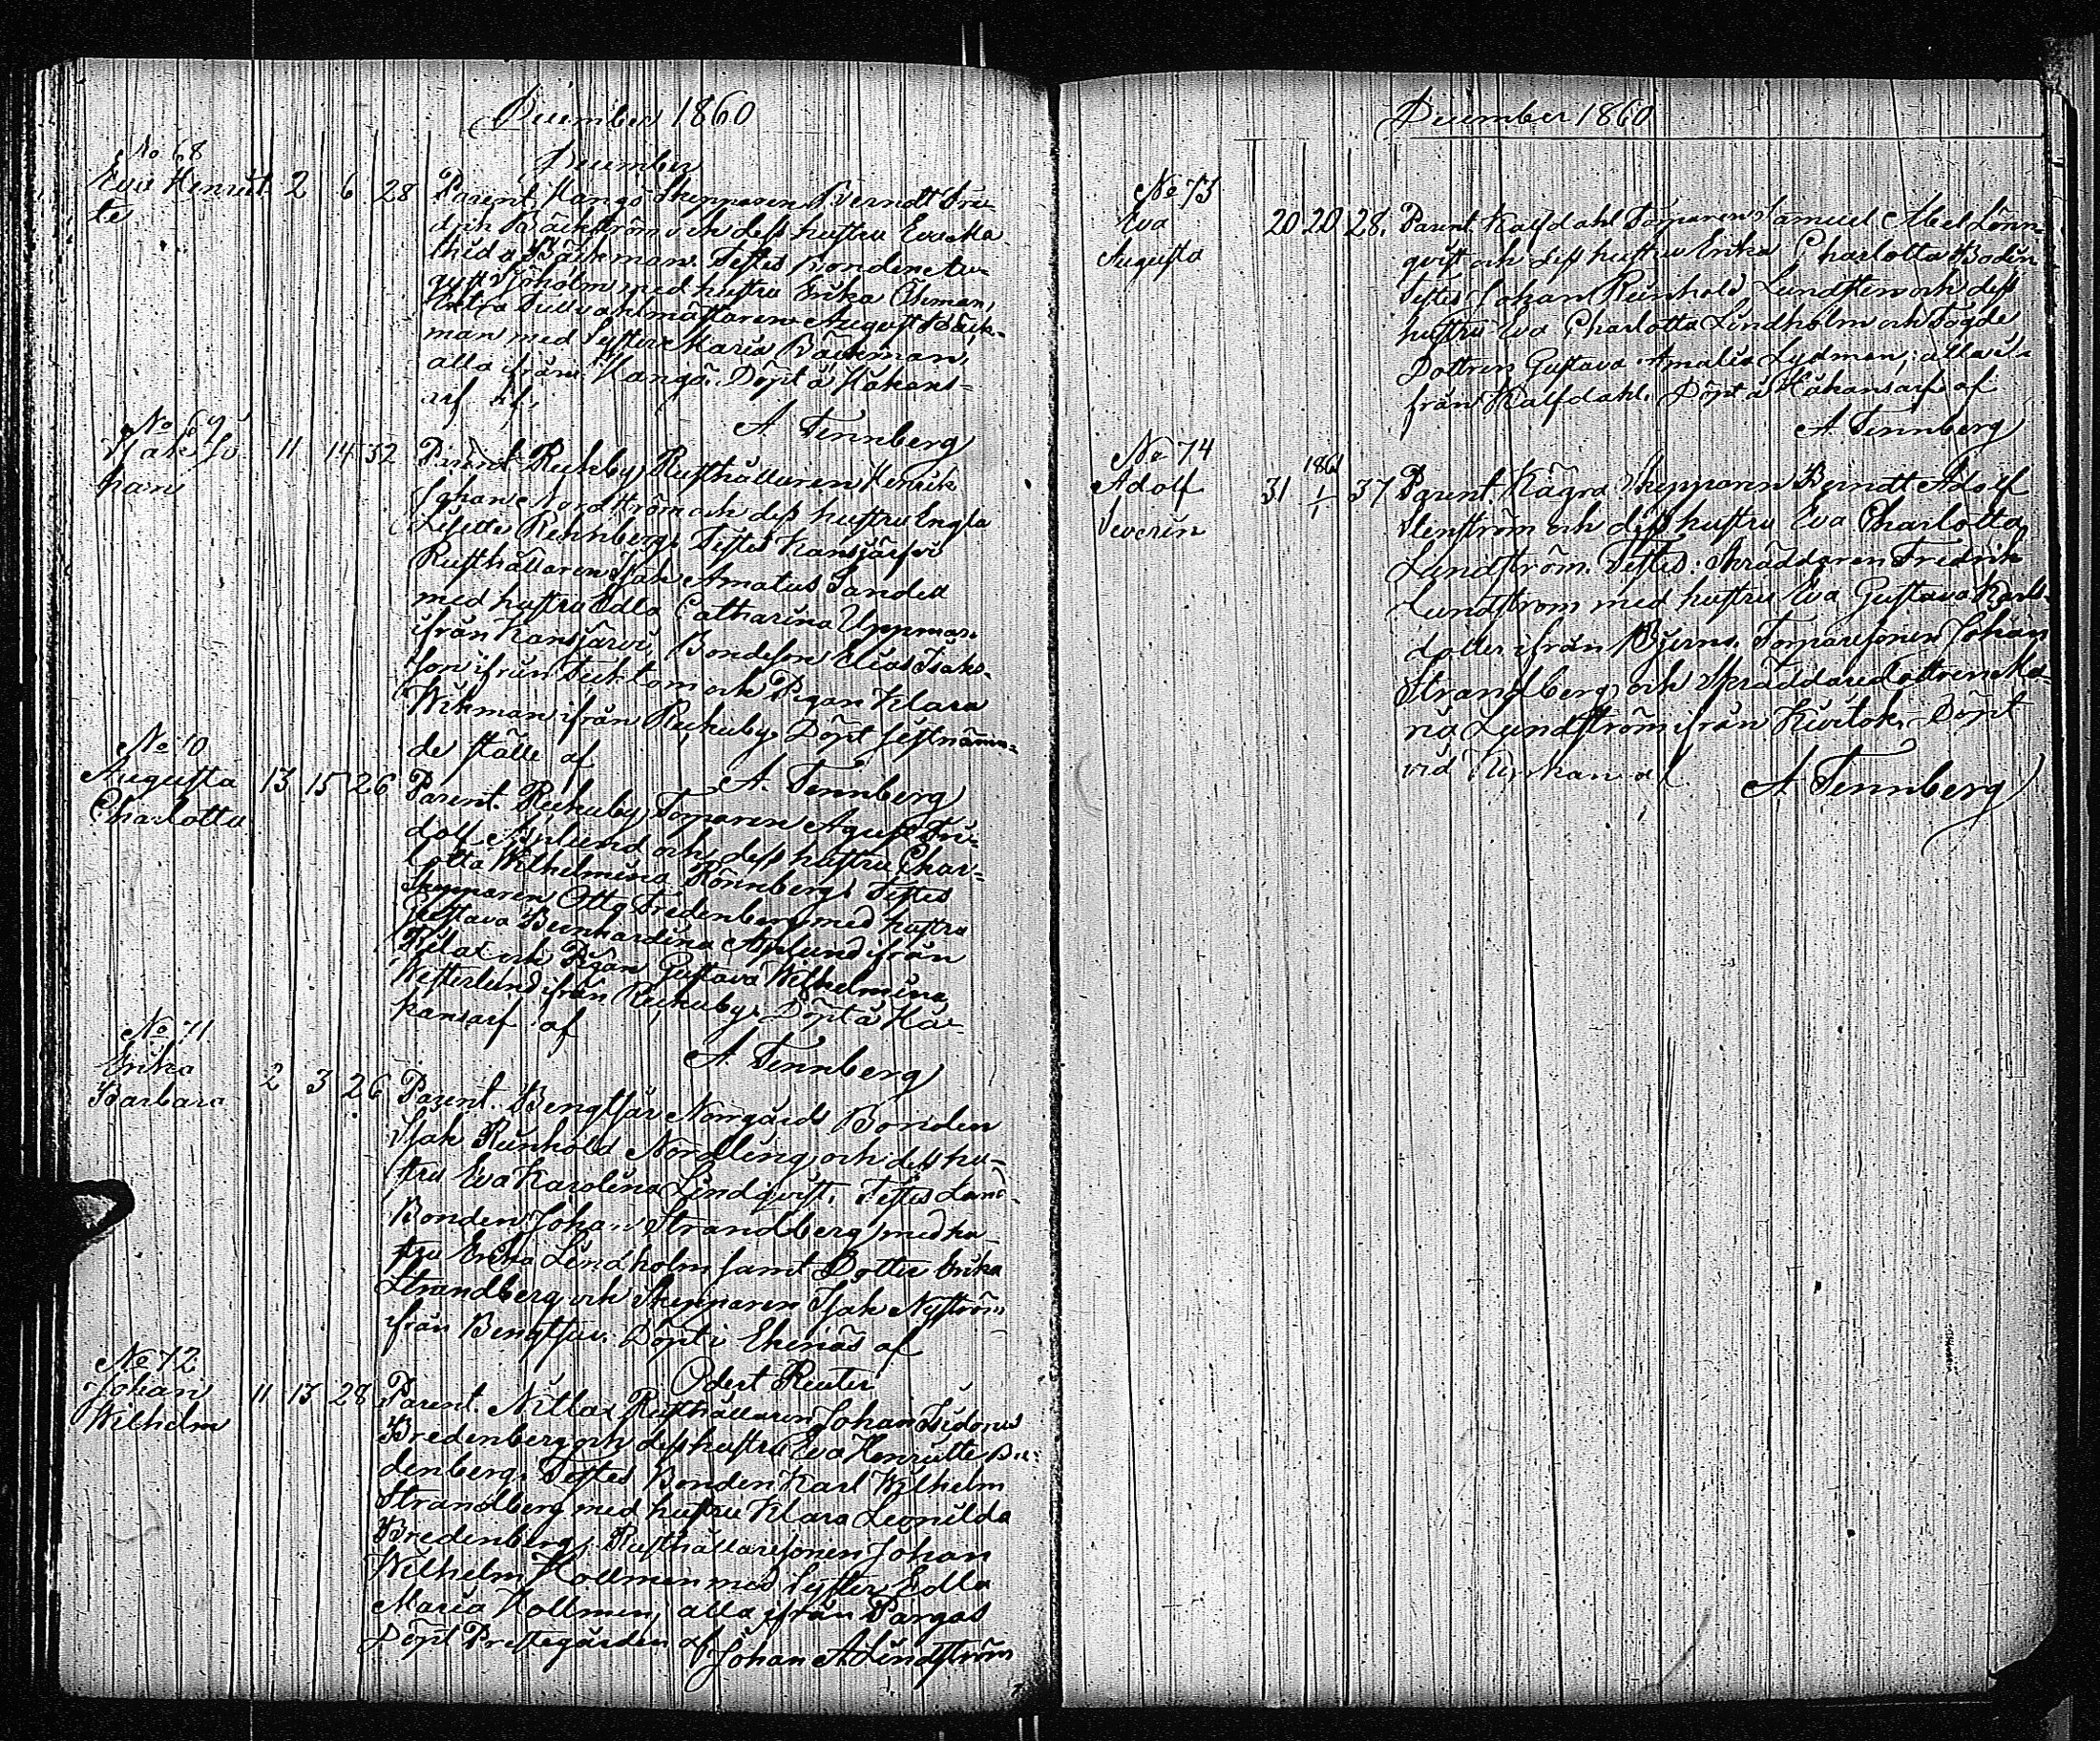 December 1860
December
No 68
Eva Henriet- 2 6 28 Parent. Hangö Skepparen Berndt Fre-
te
drik Bäckström och dess hustru Eva Ma-
thilda Bäckman. Testes Bonden Au-
gust Sjöholm med hustru Erika Öhman,
Extra Tullvaktmästaren August Bäck-
man med Syster Maria Bäckman,
alla ifrån Hangö. Döpt å Håkans-
arf af,
A Tennberg
No 69
Isak Jo- 11 14 32 Parent. Reckby Rusthållaren Henrik
han
Johan Nordström och dess hustru Engla
Lisette Rehnberg. Testes Kansjärfvi
Rusthållaren Isak Amatus Sandell
med hustru Edla Catharina Uppman
ifrån Kansjärvi, Bondeson Elias Isaks-
son ifrån Tecktom och Pigan Klara
Wikman ifrån Reckuby. Döpt sistnämn-
de ställe af
A. Tennberg
No 70
Augusta 13 15 26 Parent. Reckuby Torparen Agust Fri-
Charlotta
dolf Asplund och dess hustru Char-
lotta Wilhelmina Rönnberg. Testes
Skepparen Otto Fredenberg med hustru
Gustava Bernhardina Asplund ifrån
Rilax och Pigan Gustava Wilhelmina
Westerlund ifrån Reckuby. Döpt å Hå-
kansarf af
A Tennberg
No 71
Erika
Barbara 2 3 26 Parent. Bengtsår Norrgårds Bonden
Isak Reinhold Nordling och dess hu-
stru Eva Karolina Lindqvist. Testes Land-
Bonden Johan Strandberg med hu-
stru Erika Lindholm samt Dotter Erika
Strandberg och Skepparen Isak Nyström
ifrån Bengtsår. Döpt i Ekenäs af
Odert Reuter
No 72
Johan 11 13 28 Parent. Nitlax Rusthållaren Johan Isidorus
Wilhelm
Bredenberg och dess hustru Eva Henriette Bre-
denberg. Testes Bonden Karl Wilhelm
Strandberg med hustru Klara Leonilda
Bredenberg, Rusthållaresonen Johan
Wilhelm Hollmen med Syster Edla
Maria Hollmen, alla ifrån Pargas
Döpt Prestegården af Johan A Lindström
December 1860
No 73
Eva 20 20 28. Parent. Kalfdahl Torparen Samuel Abel Lönn-
Augusta
qvist och dess hustru Erika Charlotta Bodén
Testes Johan Reinhold Lundsten och dess
hustru Eva Charlotta Lindholm och Fogde
Dottren Gustava Amalia Lydman, alla i-
från Kalfdahl. Döpt å Håkansarf af
A. Tennberg
No 74
1861
Adolf 31 1/1 37 Parent. Kägra Skepparen Berndt Adolf
Severin
Stenström och dess hustru Eva Charlotta
Lundström. Testes. Skräddaren Fredrik
Lundström med hustru Eva Gustava Karls-
dotter ifrån Bjerno, Torparesonen Johan
Strandberg och Skräddaredottren Ma-
ria Lundström ifrån Kivitok. Döpt
vid Kyrkan af
A Tennberg